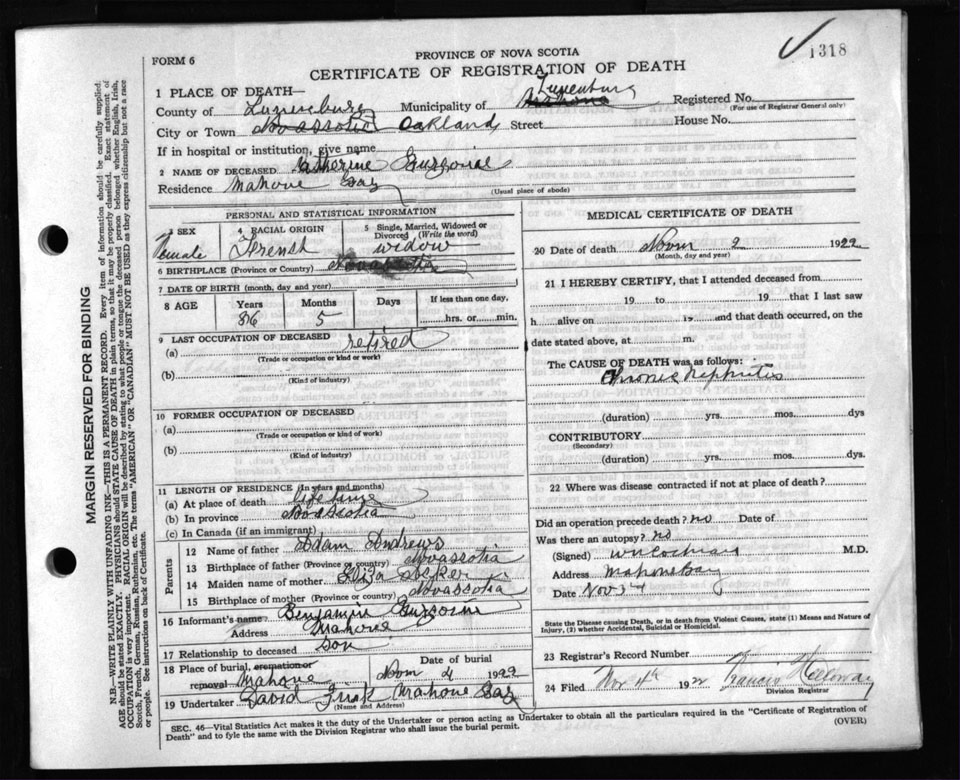 1318
FORM 6
PROVINCE OF NOVA SCOTIA
CERTIFICATE OF REGISTRATION OF DEATH
1 PLACE OF DEATH—
County of Lunenburg Municipality of Lunenburg Mahone Registered No.
(For use of Registrar General only)
City or Town Novascotia Oakland Street House No.
If in hospital or institution, give name
2 NAME OF DECEASED Catherine
Residence Mahone Bay
(Usual place of abode)
PERSONAL AND STATISTICAL INFORMATION
3 SEX Female
4 RACIAL ORIGIN Frensh
5 Single, Married, Widowed or Divorced (Write the word) widow
6 BIRTHPLACE (Province or Country) Novascotia
7 DATE OF BIRTH (month, day and year)
8 AGE Years Months Days If less than one day,
86 5 hrs. or min.
9 LAST OCCUPATION OF DECEASED retired
(a)
(Trade or occupation or kind of work)
(b)
(Kind of industry)
10 FORMER OCCUPATION OF DECEASED
(a)
(Trade or occupation or kind of work)
(b)
(Kind of industry)
11 LENGTH OF RESIDENCE (In years and months)
(a) At place of death life time
(b) In province Novascotia
(c) In Canada (if an immigrant)
Parents
12 Name of father Adam Andrews
13 Birthplace of father (Province or country) Novascotia
14 Maiden name of mother Eliza
15 Birthplace of mother (Province or country) Novascotia
16 Informant's name Benjamin
Address Mahone
17 Relationship to deceased son
18 Place of burial, cremation or removal Mahone Date of burial Nov 4 1922
19 Undertaker David Mahone Bay
(Name and Address)
MEDICAL CERTIFICATE OF DEATH
20 Date of death Nov 2 1922
(Month, day and year)
21 I HEREBY CERTIFY, that I attended deceased from
19 to 19 that I last saw
h alive on 19 and that death occurred, on
date stated above, at m.
The CAUSE OF DEATH was as follows:
Chronic Nephritis
(duration) yrs. mos. dys
CONTRIBUTORY
(Secondary)
(duration) yrs. mos. dys.
22 Where was disease contracted if not at place of death?
Did an operation precede death? no Date of
Was there an autopsy? no
(Signed) W N Cochran M.D.
Address Mahone Bay
Date Nov
State the Disease causing Death, or in death from Violent Causes, state (1) Means and Nature of Injury, (2) whether Accidental, Suicidal or Homicidal.
23 Registrar's Record Number
24 Filed Nov 4th 1922 Francis Holloway
Division Registrar
SEC. 46—Vital Statistics Act makes it the duty of the Undertaker or person acting as Undertaker to obtain all the particulars required in the "Certificate of Registration of
Death" and to fyle the same with the Division Registrar who shall issue the burial permit. (OVER)
MARGIN RESERVED FOR BINDING
N.B.—WRITE PLAINLY WITH UNFADING INK—THIS IS A PERMANENT RECORD. Every item of information should be carefully supplied.
AGE should be stated EXACTLY. PHYSICIANS should STATE CAUSE OF DEATH in plain terms, so that it may be properly classified. Exact statement of
OCCUPATION is very important. RACIAL ORIGIN will be described by stating to what people or tongue the deceased person belonged whether English, Irish,
Scotch, French, German, Russian, Ruthenian, etc. The terms "AMERICAN" OR "CANADIAN" MUST NOT BE USED as they express citizenship but not a race
or people. See instructions on back of Certificate.